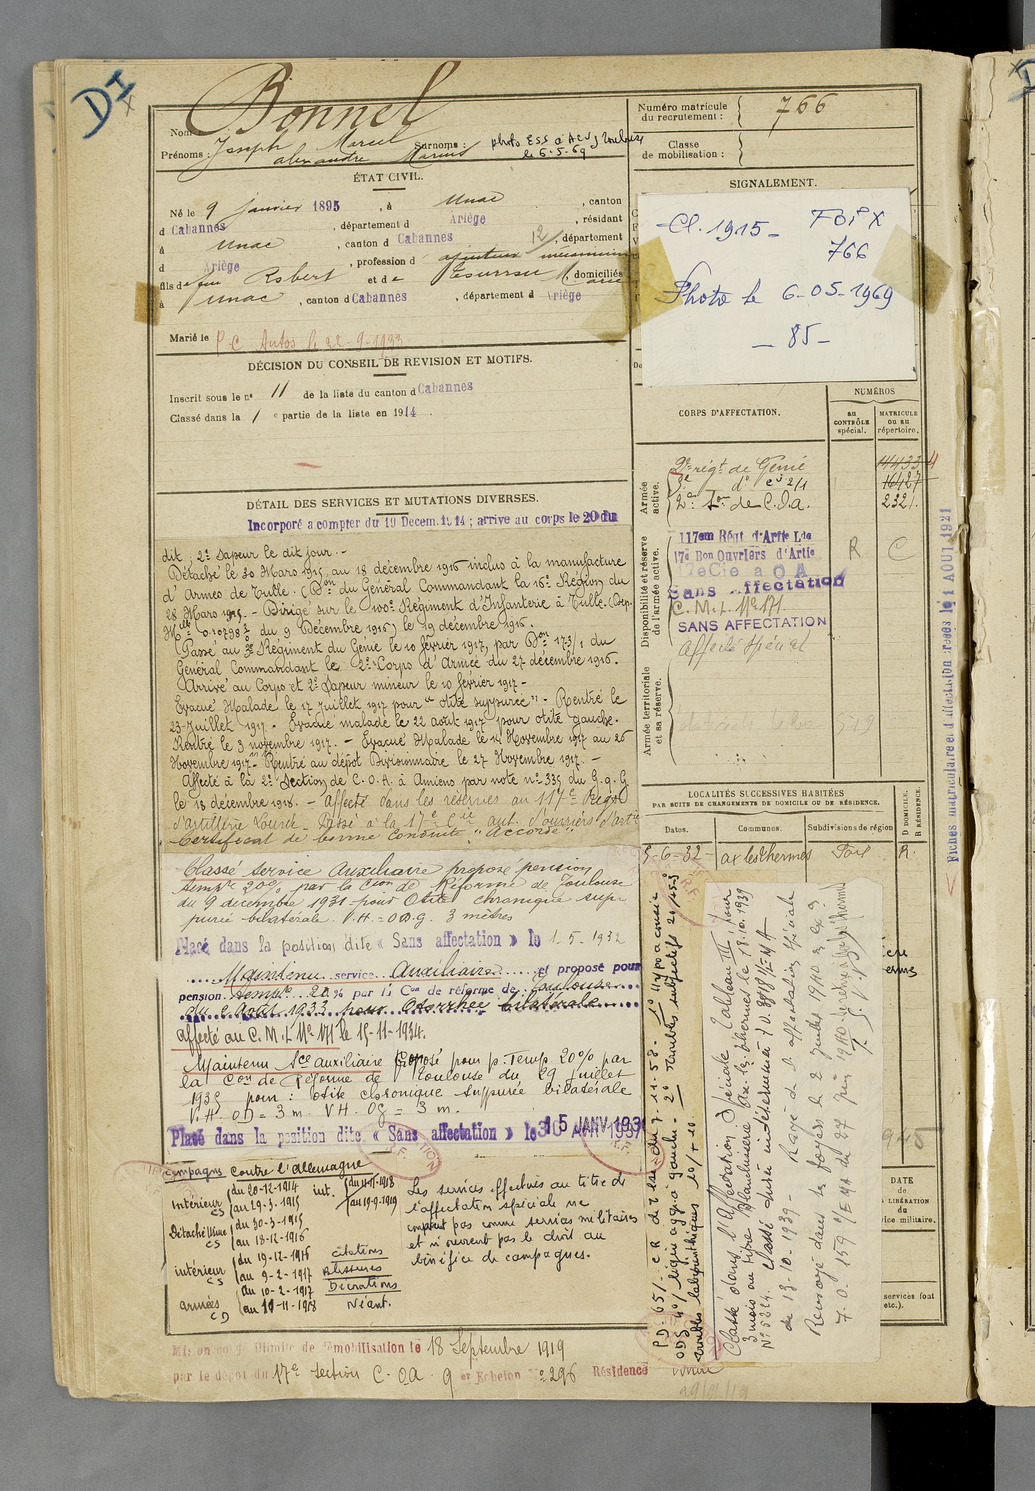 DI
Nom : Bonnel
Prénoms : Joseph Marcel Surnoms :
alexandre Marius
photo ESS à ACVG Toulouse
le 6-5-69
Numéro matricule
du recrutement : 766
Classe
de mobilisation :
ÉTAT CIVIL.
Né le 9 janvier 1895, à Unac, canton
d Cabannes, département d Ariège, résidant
à Unac, canton d Cabannes 12, département
d Ariège, profession d ajusteur mécanicien
fils de feu Robert et de Marie, domiciliés
à Unac, canton d Cabannes, département d Ariège
Marié le P.C. Autos le 22-9-1933
SIGNALEMENT.
Cl. 1915 - FOIX
766
Photo le 6-05-1969
- 85 -
DÉCISION DU CONSEIL DE REVISION ET MOTIFS.
Inscrit sous le n° 11 de la liste du canton d Cabannes
Classé dans la 1e partie de la liste en 1914
DÉTAIL DES SERVICES ET MUTATIONS DIVERSES.
Incorporé a compter du 19 Decem. 1914 ; arrive au corps le 20 du
dit ; 2e Sapeur le dit jour. -
Détaché le 30 Mars 1915 au 18 décembre 1916 inclus à la manufacture
d'Armes de Tulle. (Don du Général Commandant la 16e Région du
28 Mars 1915. - Dirigé sur le 100e Régiment d'Infanterie à Tulle. (Dép.
Mlle du 9 Décembre 1916) le 19 décembre 1916.
Passé au Régiment du Génie le 10 février 1917, par Don 173/1 du
Général Commandant le 2e Corps d'Armée du 27 décembre 1916.
Arrivé au Corps et 2e Sapeur mineur le 10 février 1917 -
Evacué Malade le 17 Juillet 1917 pour "otite suppurée" - Rentré le
23 Juillet 1917. Evacué malade le 22 août 1917 pour otite gauche.
Rentré le 3 novembre 1917. - Evacué Malade le 14 Novembre 1917 au 26
Novembre 1917 - Rentré au dépôt Divisionnaire le 27 Novembre 1917. -
Affecté à la 2e Section de C.O.A. à Amiens par note n° 335 du G.q.G
le 18 décembre 1918. - Affecté dans les réserves au 117e Régt
d'artillerie Lourde - Passé à la 17e Cie aut. d'ouvriers d'artie
Certificat de bonne Conduite "Accordé"
Classé service Auxiliaire proposé pension
tempre 20% par la Cion de Réforme de Toulouse
du 9 décembre 1931 pour Otite chronique supp-
purée bilatérale. V.H. = O.D.g. 3 mètres
Placé dans la position dite « Sans affectation » le 1-5-1932
Maintenu service Auxiliaire et proposé pour
pension tempre 20% par la Con de réforme de Toulouse
du 2 Août 1933 pour Otorrhée bilatérale
affecté au C.M.I. N° 171 le 15-11-1934.
Maintenu Sce auxiliaire Proposé pour p. Temp. 20% par
la Con de Réforme de Toulouse du 29 juillet
1935 pour : otite chronique suppurée bilatérale
V.H. OD = 3 m. VH. Og = 3 m.
Placé dans la position dite « Sans affectation » le 15 JANV 193
Campagne contre l'allemagne
Intérieur CS {du 20-12-1914 au 29-3-1915
Détaché Usine CS {du 30-3-1915 au 18-12-1916
intérieur CS {du 19-12-1916 au 9-2-1917
armées CD {du 10-2-1917 au 10-11-1918
int. {du 11-11-1918 au 19-9-1919
Citations
Blessures
Décorations
Néant.
Les services effectués au titre de
l'affectation spéciale ne
comptent pas comme services militaires
et n'ouvrent pas le droit au
bénéfice de campagnes.
Mis en congé illimité de démobilisation le 18 Septembre 1919
par le dépôt du 17e section C.OA. 9e Echelon n° 296 Résidence Unac
CORPS D'AFFECTATION.
NUMÉROS
au CONTRÔLE spécial.
MATRICULE OU AU répertoire.
Armée active.
2e régt de Génie 14433
3e do cie 2/1 16427
2e Son de C.O.A. 2321
Disponibilité et réserve de l'armée active.
117em Régt d'Artie Lde
17e Bon Ouvriers d'Artie R C
Sans affectation
C.M.I. N° 171.
SANS AFFECTATION
Affecté spécial
Armée territoriale et sa réserve.
LOCALITÉS SUCCESSIVES HABITÉES
PAR SUITE DE CHANGEMENTS DE DOMICILE OU DE RÉSIDENCE.
Dates. Communes. Subdivisions de région D DOMICILE. R RÉSIDENCE.
5-6-32 - ax les thermes Foix R.
P.D. 65%. CR de Toulouse du 7-11-58. 1° Hypoacousie
2° Troubles subjectifs
troubles labyrinthiques 10% + 10
Classé dans l'Affectation Spéciale Tableau III, pour
3 mois au titre Blanchisserie Ax-les-thermes le 18.10.1939
N° 5224. Classé durée indéterminée
du 13-10-1939 - Rayé de l'affectation spéciale
Renvoyé dans ses foyers le 2 Juillet 1940
F.O. 159 /EMA du 27 juin 1940
DATE
de
LIBÉRATION
du
service militaire.
services font
etc.).
Fiches matriculaire et d'affection créées le 1 AOUT 1921